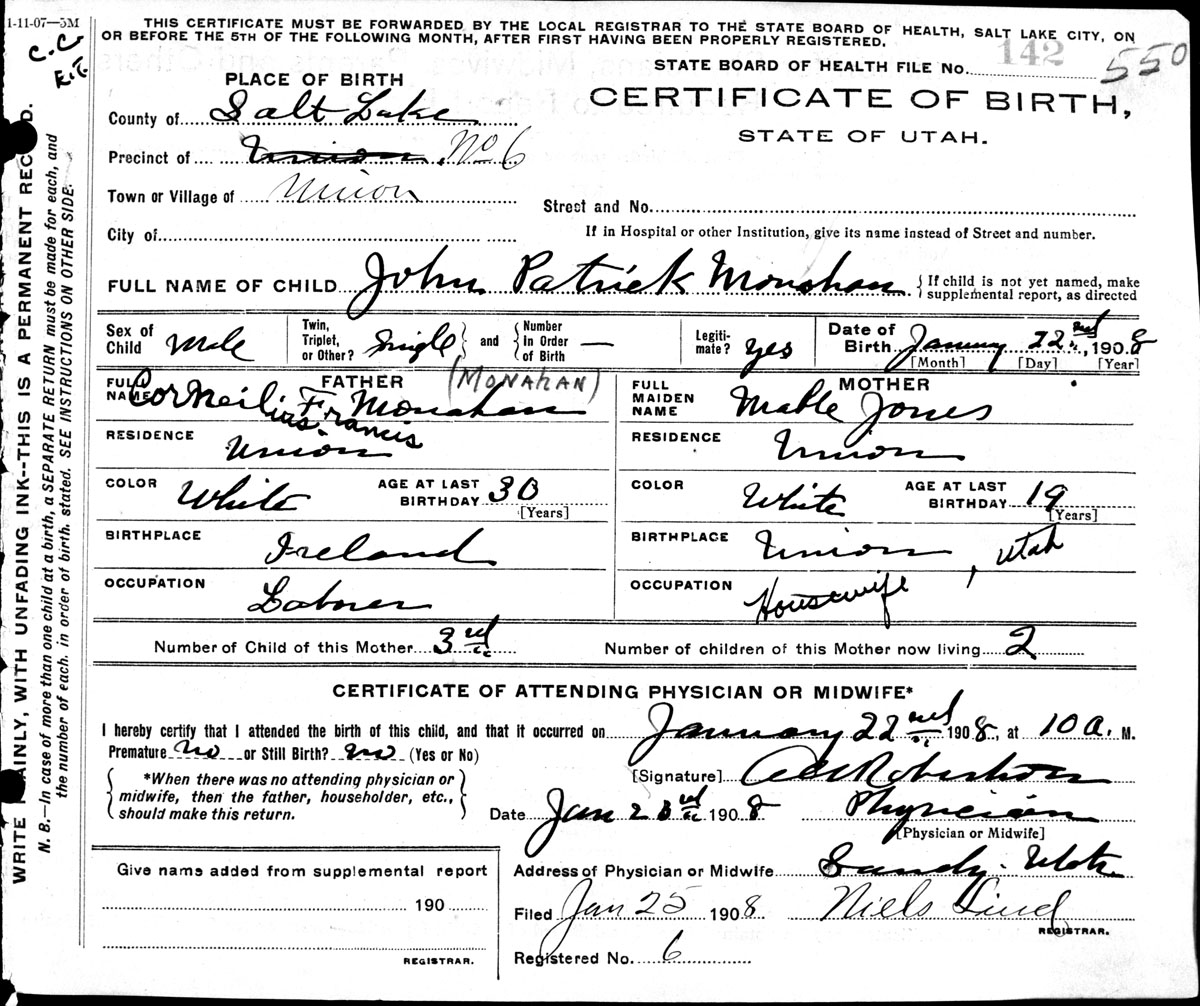 1-11-07—5M
C. C.
E. E.
THIS CERTIFICATE MUST BE FORWARDED BY THE LOCAL REGISTRAR TO THE STATE BOARD OF HEALTH, SALT LAKE CITY, ON
OR BEFORE THE 5TH OF THE FOLLOWING MONTH, AFTER FIRST HAVING BEEN PROPERLY REGISTERED.
STATE BOARD OF HEALTH FILE No. 142 550
PLACE OF BIRTH
CERTIFICATE OF BIRTH,
STATE OF UTAH.
County of Salt Lake
Precinct of Union No 6
Town or Village of Union
Street and No.
City of
If in Hospital or other Institution, give its name instead of Street and number.
FULL NAME OF CHILD John Patrick Monahan { If child is not yet named, make
supplemental report, as directed
Sex of Child Male
Twin, Triplet, or Other? Single } and { Number In Order of Birth —
Legiti-mate? yes
Date of Birth January 22nd, 1908
[Month] [Day] [Year]
FATHER (MONAHAN)
FULL NAME Corneilius Francis Monahan
RESIDENCE Union
COLOR White AGE AT LAST BIRTHDAY 30
[Years]
BIRTHPLACE Ireland
OCCUPATION Laborer
MOTHER
FULL MAIDEN NAME Mable Jones
RESIDENCE Union
COLOR White AGE AT LAST BIRTHDAY 19
[Years]
BIRTHPLACE Union, Utah
OCCUPATION Housewife
Number of Child of this Mother 3rd Number of children of this Mother now living 2
CERTIFICATE OF ATTENDING PHYSICIAN OR MIDWIFE*
I hereby certify that I attended the birth of this child, and that it occurred on January 22nd 1908, at 10 a. M.
Premature no or Still Birth? no (Yes or No)
{ *When there was no attending physician or
midwife, then the father, householder, etc.,
should make this return. }
[Signature] Robertson
Date Jan 23rd 1908 Physician
[Physician or Midwife]
Address of Physician or Midwife Sandy. Utah
Filed Jan 25 1908 Niels Lind
REGISTRAR.
Registered No. 6
Give name added from supplemental report
190
REGISTRAR.
WRITE PLAINLY, WITH UNFADING INK--THIS IS A PERMANENT RECORD.
N. B.—In case of more than one child at a birth, a SEPARATE RETURN must be made for each, and
the number of each. in order of birth. stated. SEE INSTRUCTIONS ON OTHER SIDE.